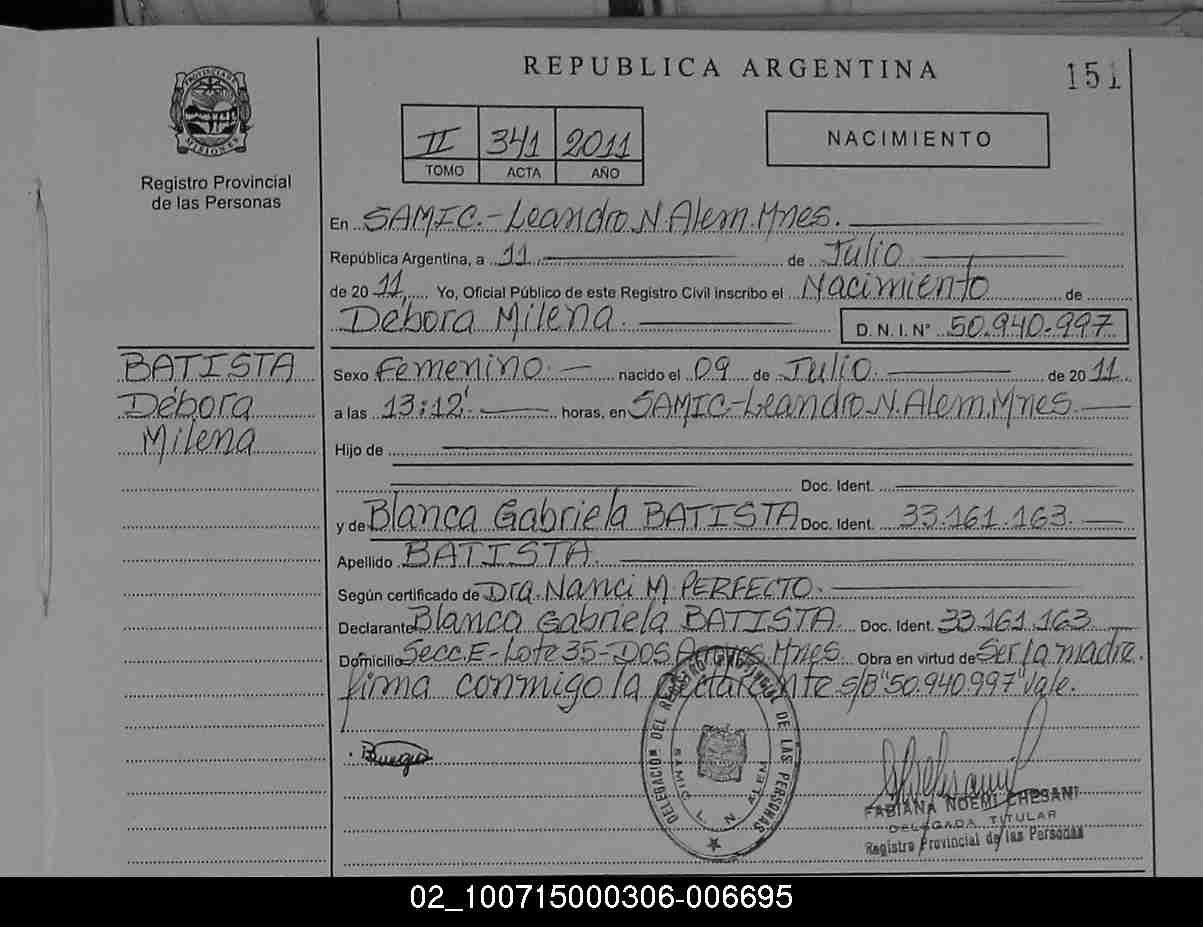 REPUBLICA ARGENTINA
151
PROVINCIA DE MISIONES
Registro Provincial
de las Personas
II 341 2011
TOMO ACTA AÑO
NACIMIENTO
En SAMIC.-Leandro N. Alem. Mnes.
República Argentina, a 11 de Julio
de 2011, Yo, Oficial Público de este Registro Civil inscribo el Nacimiento de
Débora Milena. D. N. I. Nº 50.940.997
BATISTA
Débora
Milena
Sexo Femenino. nacido el 09 de Julio. de 2011
a las 13:12' horas, en SAMIC-Leandro N. Alem. Mnes.
Hijo de
Doc. Ident.
y de Blanca Gabriela BATISTA Doc. Ident. 33.161.163.
Apellido BATISTA.
Según certificado de Dra. Nanci M. PERFECTO.
Declarante Blanca Gabriela BATISTA. Doc. Ident. 33.161.163
Domicilio Secc. E-Lote 35-DOS Arroyos. Mnes. Obra en virtud de Ser la madre.
firma conmigo la declarante s/B "50.940.997" Vale.
DELEGACION DEL REGISTRO PROVINCIAL DE LAS PERSONAS
SAMIC L. N. ALEM
FABIANA NOEMI CHESANI
DELEGADA TITULAR
Registro Provincial de las Personas
02_100715000306-006695